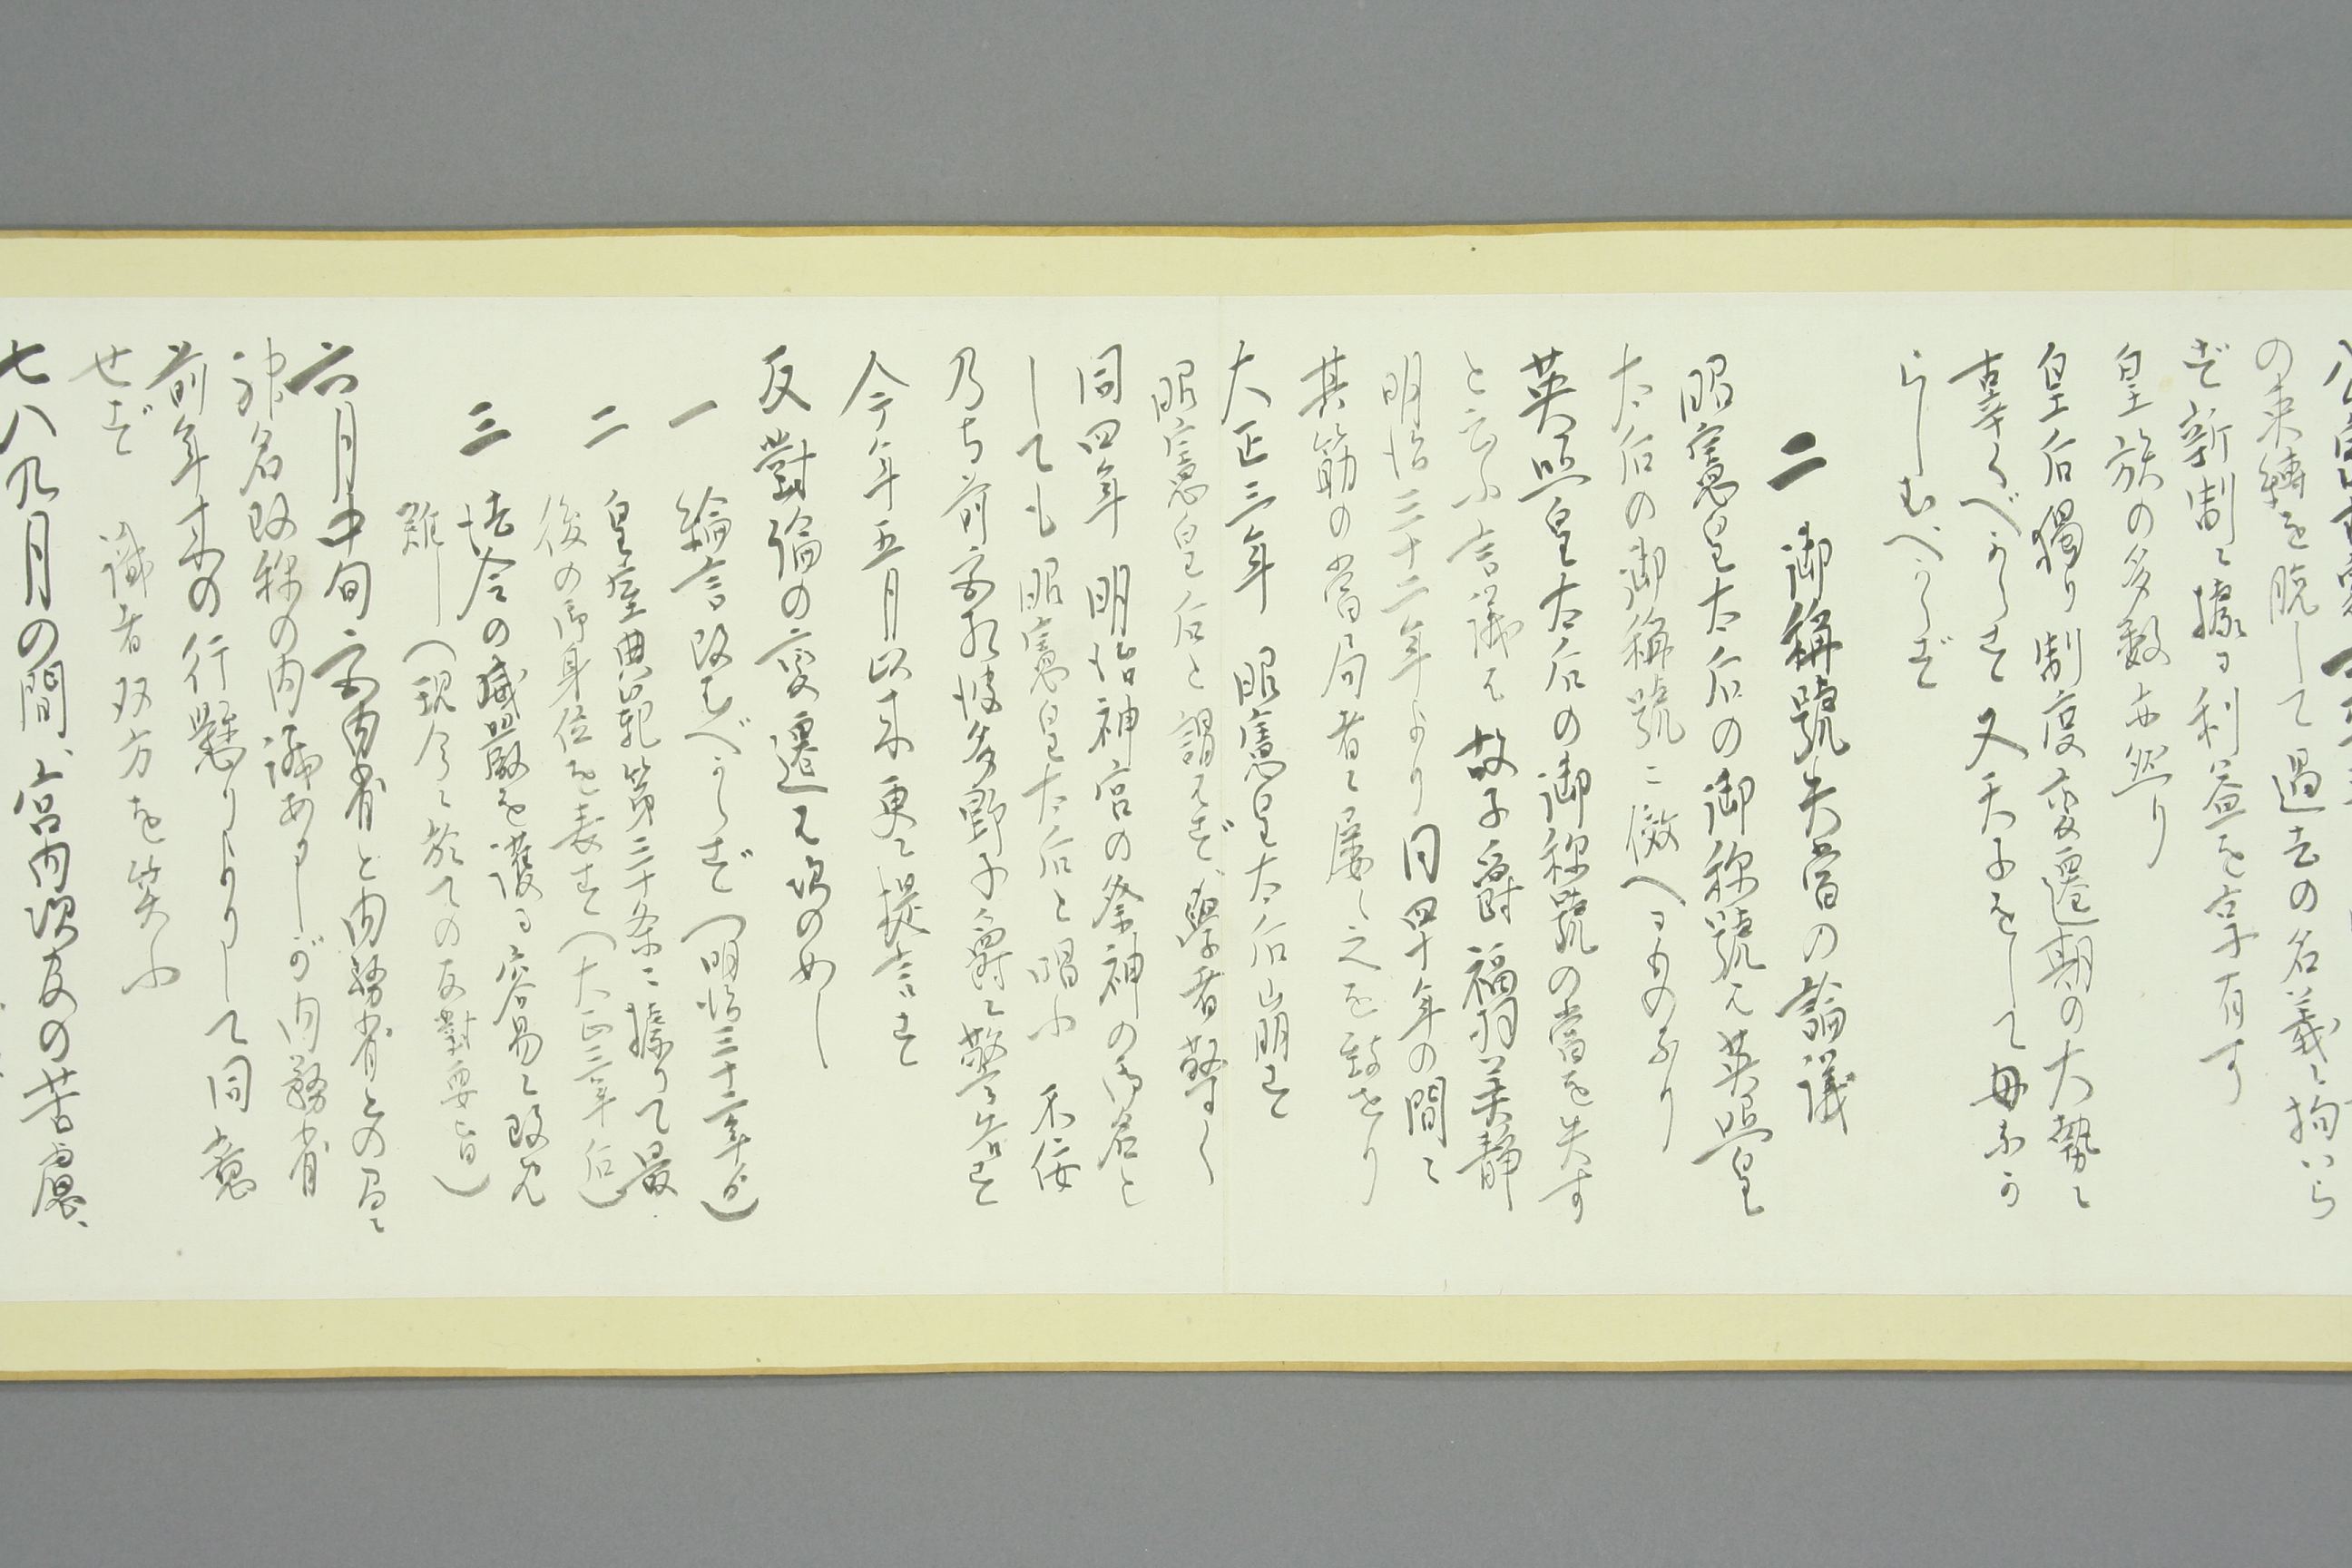 の束縛を脱して過去の名義に拘はら
ず新制に據り利益を享有す
皇族の多数皆然り
皇后獨り制度変遷期の大勢に
辜くべからず又天子をして母なか
らしむべからず
二 御稱號失當の論議
昭憲皇太后の御称號は英照皇
太后の御稱號に倣へるものなり
英照皇太后の御称號の當を失す
と云ふ言議は故子爵福羽美静
明治三十二年より同四十年の間に
其筋の當局者に屡々之を致せり
大正三年 昭憲皇太后崩せ
昭憲皇后と謚せず、學者驚く
同四年 明治神宮の祭神の御名と
しても昭憲皇太后と謂ふ 不佞
乃ち前宮相波多野子爵に藪言せ
今年五月以来更に提言せ
反對論の変遷は次の如し
一 綸言改むべからず(明治三十二年前)
二 皇室典範第三十条に據りて最
後の御身位を表す(大正三年后)
三 古今の威嚴を護り容易に改め
難し(現今に於ての反對要旨)
六月中旬宮内省と内務省との間に
神名改称の内議ありしが内務省
前年来の行懸りよりして同意
せず 識者双方を笑ふ
七八九月の間、宮内次官の苦慮、